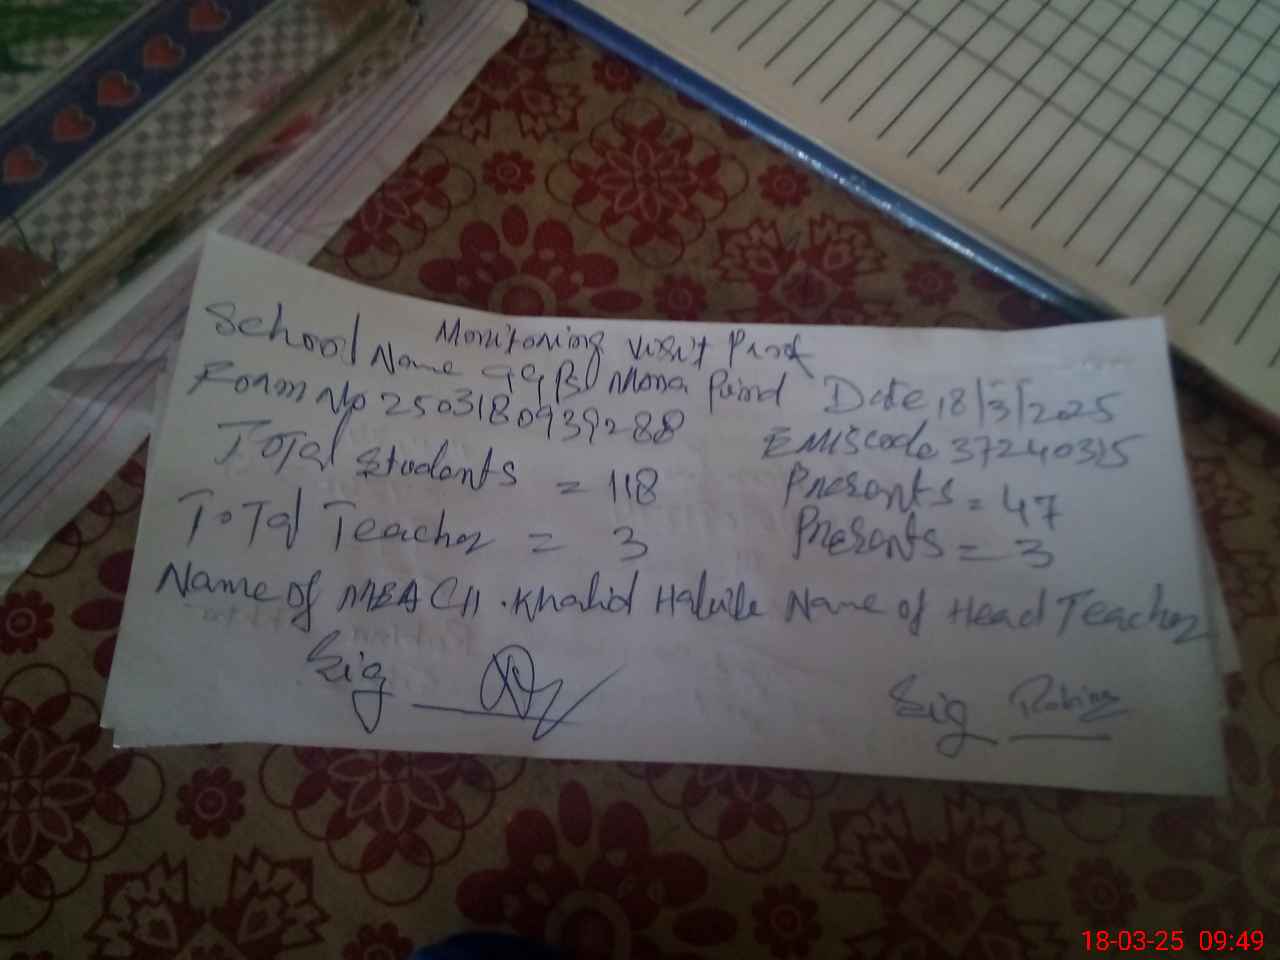 Monitoring Visit Proof
School Name GGPS Mona Pind Date 18/3/2025
Form No 2503180939288 EMIS code 37240325
Total Students = 118 Presents = 47
Total Teacher = 3 Presents = 3
Name of MEA Ch. Khalid Name of Head Teacher
Sig Sig Robina
18-03-25 09:49